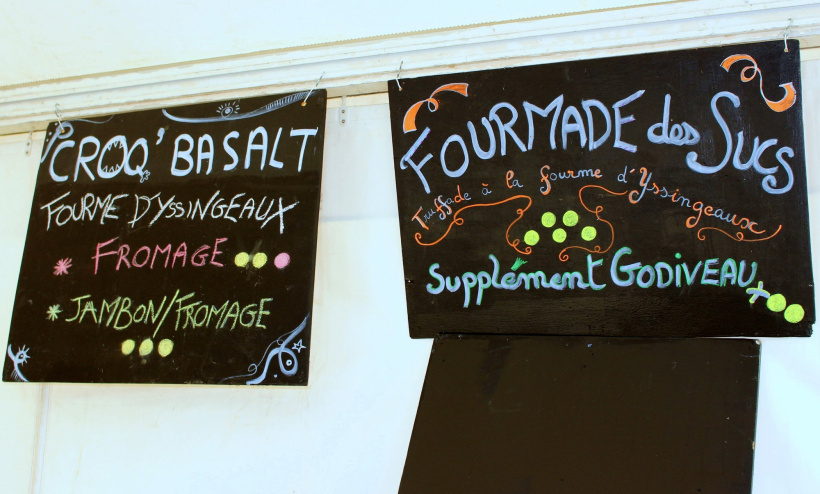 CROQ' BASALT
FOURME D'YSSINGEAUX
* FROMAGE
* JAMBON/FROMAGE
FOURMADE des Sucs
Truffade à la fourme d'Yssingeaux
Supplément GODIVEAU +